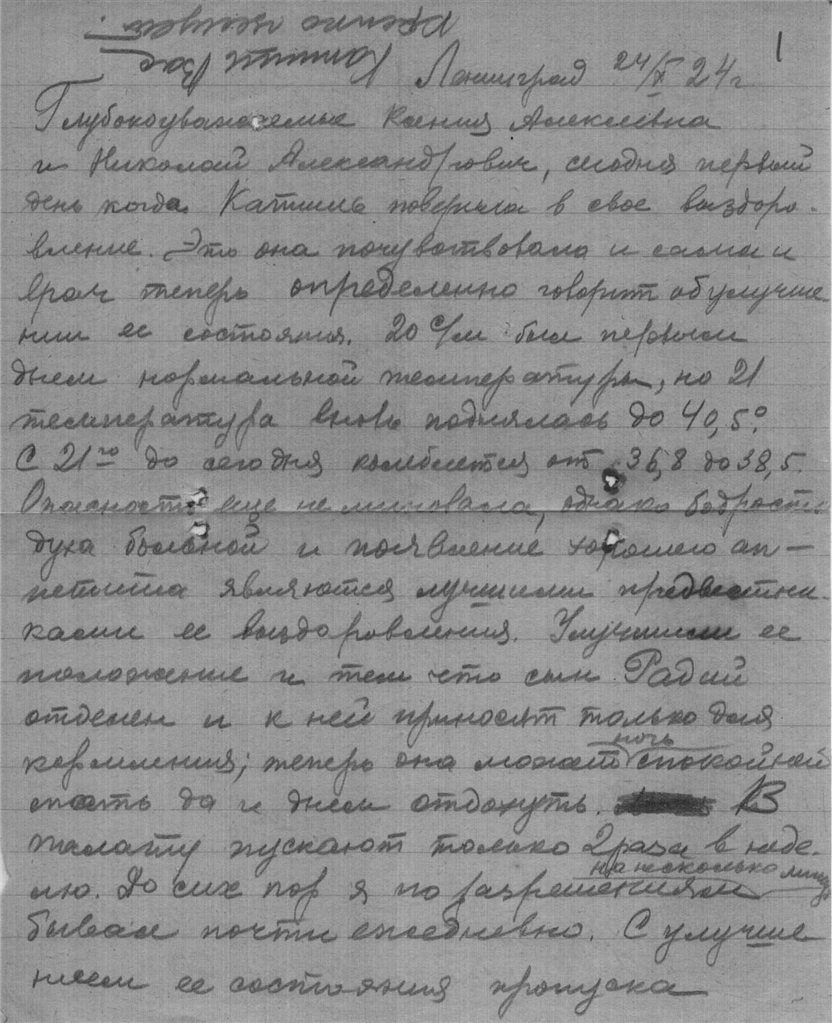 1
Катит Вас
крепко целует!
Ленинград 24/X 24 г
Глубокоуважаемые Ксения Алексеевна
и Николай Александрович, сегодня первый
день когда Катыш поверила в свое выздоро-
вление. Это она почувствовала и сама и
врач теперь определенно говорит об улучше-
нии ее состояния. 20 с/м был первым
днем нормальной температуры, но 21
температура вновь поднялась до 40,5°.
С 21го до сегодня колеблется от 36,8 до 38,5.
Опасность еще не миновала, однако бодрость
духа больной и появление хорошего ап-
петита являются лучшими предвестни-
ками ее выздоровления. Улучшили ее
положение и тем что сын Радий
отделен и к ней приносят только для
кормления; теперь она может ночь спокойной
спать да и днем отдохнуть. В
палату пускают только 2 раза в неде-
лю. До сих пор я по разрешениям на несколько минут
бывал почти ежедневно. С улучше
нием ее состояния пропуска